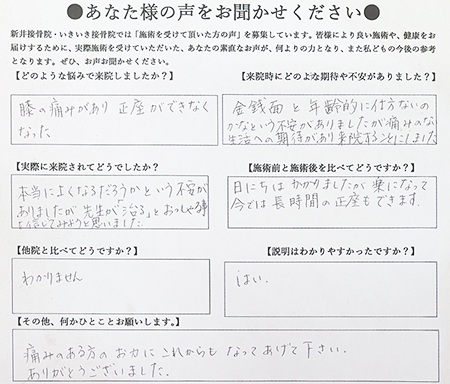 ●あなた様の声をお聞かせください●
新井接骨院・いきいき接骨院では「施術を受けて頂いた方の声」を募集しています。皆様により良い施術や、健康をお
届けするために、実際施術を受けていただいた、あなたの素直なお声が、何よりの力となり、また私どもの今後の参考
となります。ぜひ、お声お聞かせください。
【どのような悩みで来院しましたか？】
膝の痛みがあり 正座ができなく
なった
【来院時にどのよな期待や不安がありました？】
金銭面と年齢的に仕方ないの
かなという不安がありましたが痛みのない
生活への期待があり来院することにしました
【実際に来院されてどうでしたか？】
本当によくなるだろうかという不安が
ありましたが先生が「治る」とおっしゃる事
を信じてみようと思いました。
【施術前と施術後を比べてどうですか？】
日にちはかかりましたが楽になって
今では長時間の正座もできます.
【他院と比べてどうですか？】
わかりません
【説明はわかりやすかったですか？】
はい.
【その他、何かひとことお願いします。】
痛みのある方のお力にこれからもなってあげて下さい.
ありがとうございました.